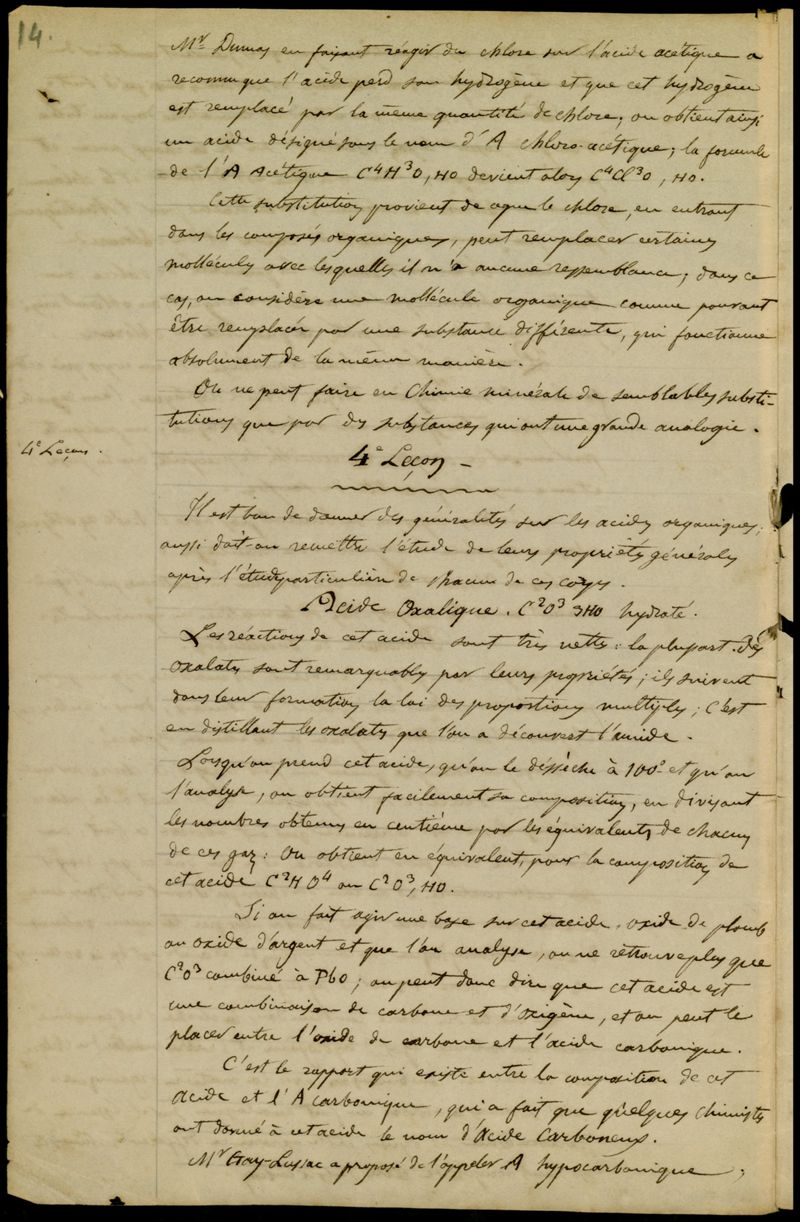 14.
Mr Dumas en faisant réagir du chlore sur l'acide acétique a
reconnu que l'acide perd son hydrogène et que cet hydrogène
est remplacé par la même quantité de chlore; on obtient ainsi
un acide désigné sous le nom d'A chloro-acétique; la formule
de l'A Acétique C⁴H³O, HO devient alors C⁴Cl³O, HO.
Cette substitution provient de ce que le chlore, en entrant
dans les composés organiques, peut remplacer certaines
mollécules avec lesquelles il n'a aucune ressemblance; dans ce
cas, on considère une mollécule organique comme pouvant
être remplacée par une substance différente, qui fonctionne
absolument de la même manière.
On ne peut faire en Chimie minérale de semblables substi-
tutions que par des substances qui ont une grande analogie.
4e Leçon.
4e Leçon –
Il est bon de donner des généralités sur les acides organiques;
aussi doit-on remettre l'étude de leurs propriétés générales
après l'étude particulière de chacun de ces corps.
Acide Oxalique. C²O³ 3HO hydraté.
Les réactions de cet acide sont très nettes: la plupart des
oxalates sont remarquables par leurs propriétés; ils suivent
dans leur formation la loi des proportions multiples; C'est
en distillant les oxalates que l'on a découvert l'amide.
Lorsqu'on prend cet acide, qu'on le déssèche à 100° et qu'on
l'analyse, on obtient facilement sa composition, en divisant
les nombres obtenus en centième par les équivalents de chacun
de ces gaz: On obtient en équivalent, pour la composition de
cet acide C²HO⁴ ou C²O³, HO.
Si on fait agir une base sur cet acide, oxide de plomb
ou oxide d'argent et que l'on analyse, on ne retrouve plus que
C²O³ combiné à PbO; on peut donc dire que cet acide est
une combinaison de carbone et d'oxigène, et on peut le
placer entre l'oxide de carbone et l'acide carbonique.
C'est le rapport qui existe entre la composition de cet
acide et l'A carbonique, qui a fait que quelques chimistes
ont donné à cet acide le nom d'Acide Carboneux.
Mr Gay-Lussac a proposé de l'appeler A hypocarbonique,